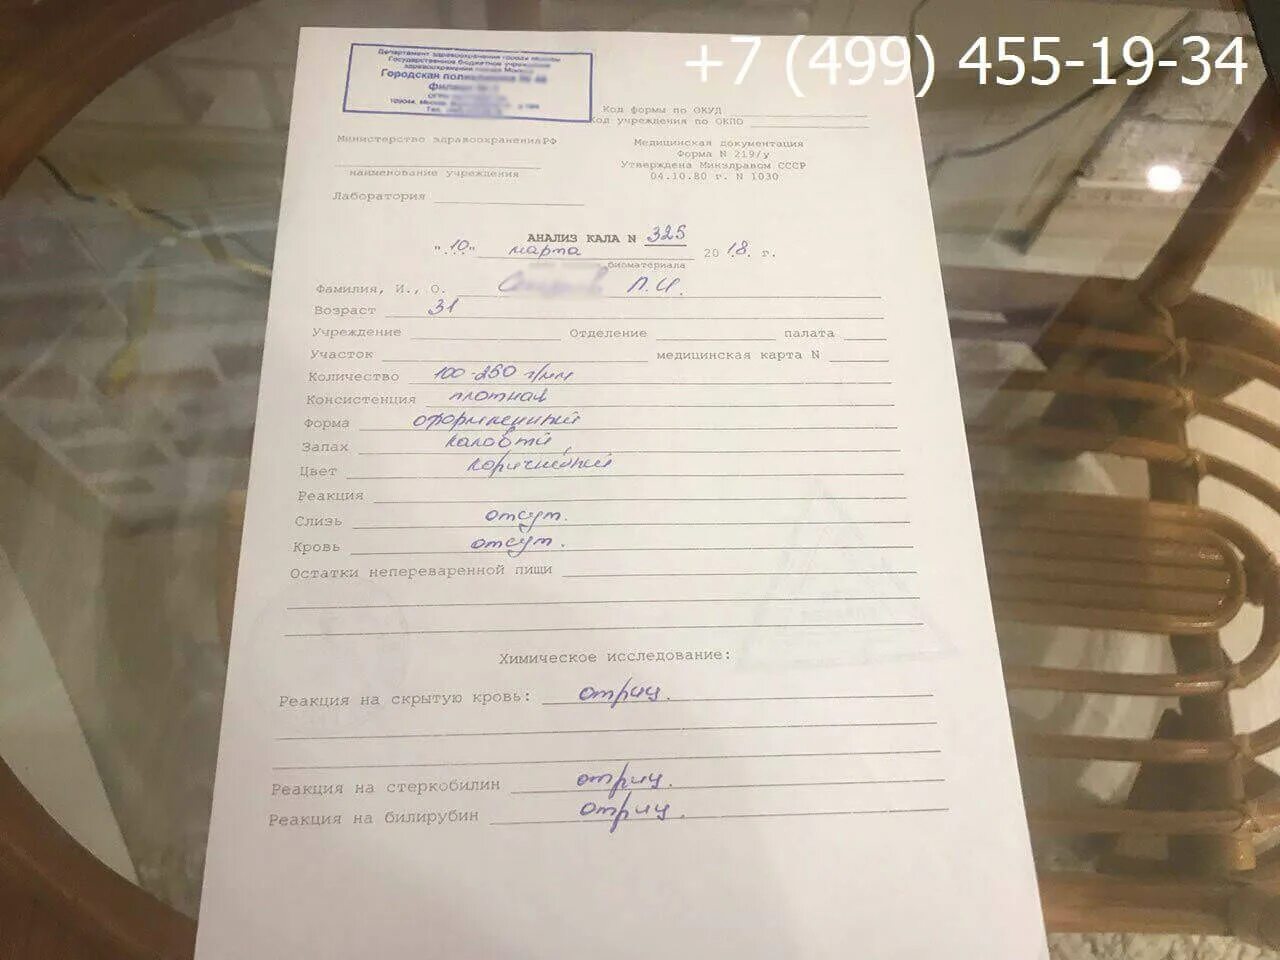 +7 (499) 455-19-34
Департамент здравоохранения города Москвы
Государственное бюджетное учреждение
здравоохранения города Москвы
Городская поликлиника №
филиал №
109044, Москва,
Код формы по ОКУД
Код учреждения по ОКПО
Министерство здравоохранения РФ
наименование учреждения
Лаборатория
Медицинская документация
Форма N 219/у
Утверждена Минздравом СССР
04.10.80 г. N 1030
АНАЛИЗ КАЛА N 325
"10" марта 2018. г.
биоматериала
Фамилия, И., О. П.И.
Возраст 31
Учреждение Отделение палата
Участок медицинская карта N
Количество 100-250 г/мм
Консистенция плотная
Форма оформленный
Запах каловый
Цвет коричневый
Реакция
Слизь отсут.
Кровь отсут.
Остатки непереваренной пищи
Химическое исследование:
Реакция на скрытую кровь: отриц.
Реакция на стеркобилин отриц.
Реакция на билирубин отриц.